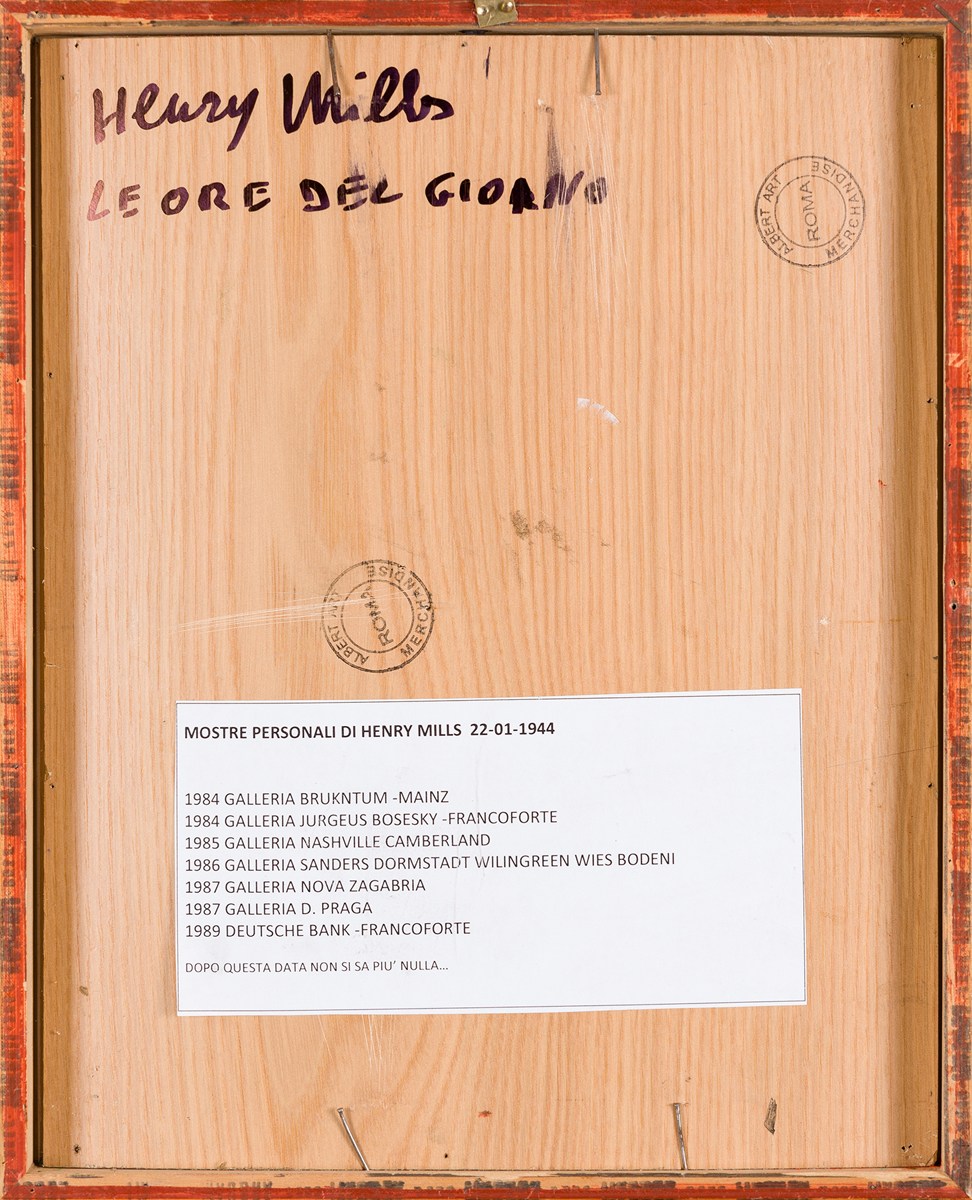 Henry Mills
LE ORE DEL GIORNO
ALBERT ART MERCHANDISE
ROMA
ALBERT ART MERCHANDISE
ROMA
MOSTRE PERSONALI DI HENRY MILLS 22-01-1944
1984 GALLERIA BRUKNTUM -MAINZ
1984 GALLERIA JURGEUS BOSESKY -FRANCOFORTE
1985 GALLERIA NASHVILLE CAMBERLAND
1986 GALLERIA SANDERS DORMSTADT WILINGREEN WIES BODENI
1987 GALLERIA NOVA ZAGABRIA
1987 GALLERIA D. PRAGA
1989 DEUTSCHE BANK -FRANCOFORTE
DOPO QUESTA DATA NON SI SA PIU’ NULLA...